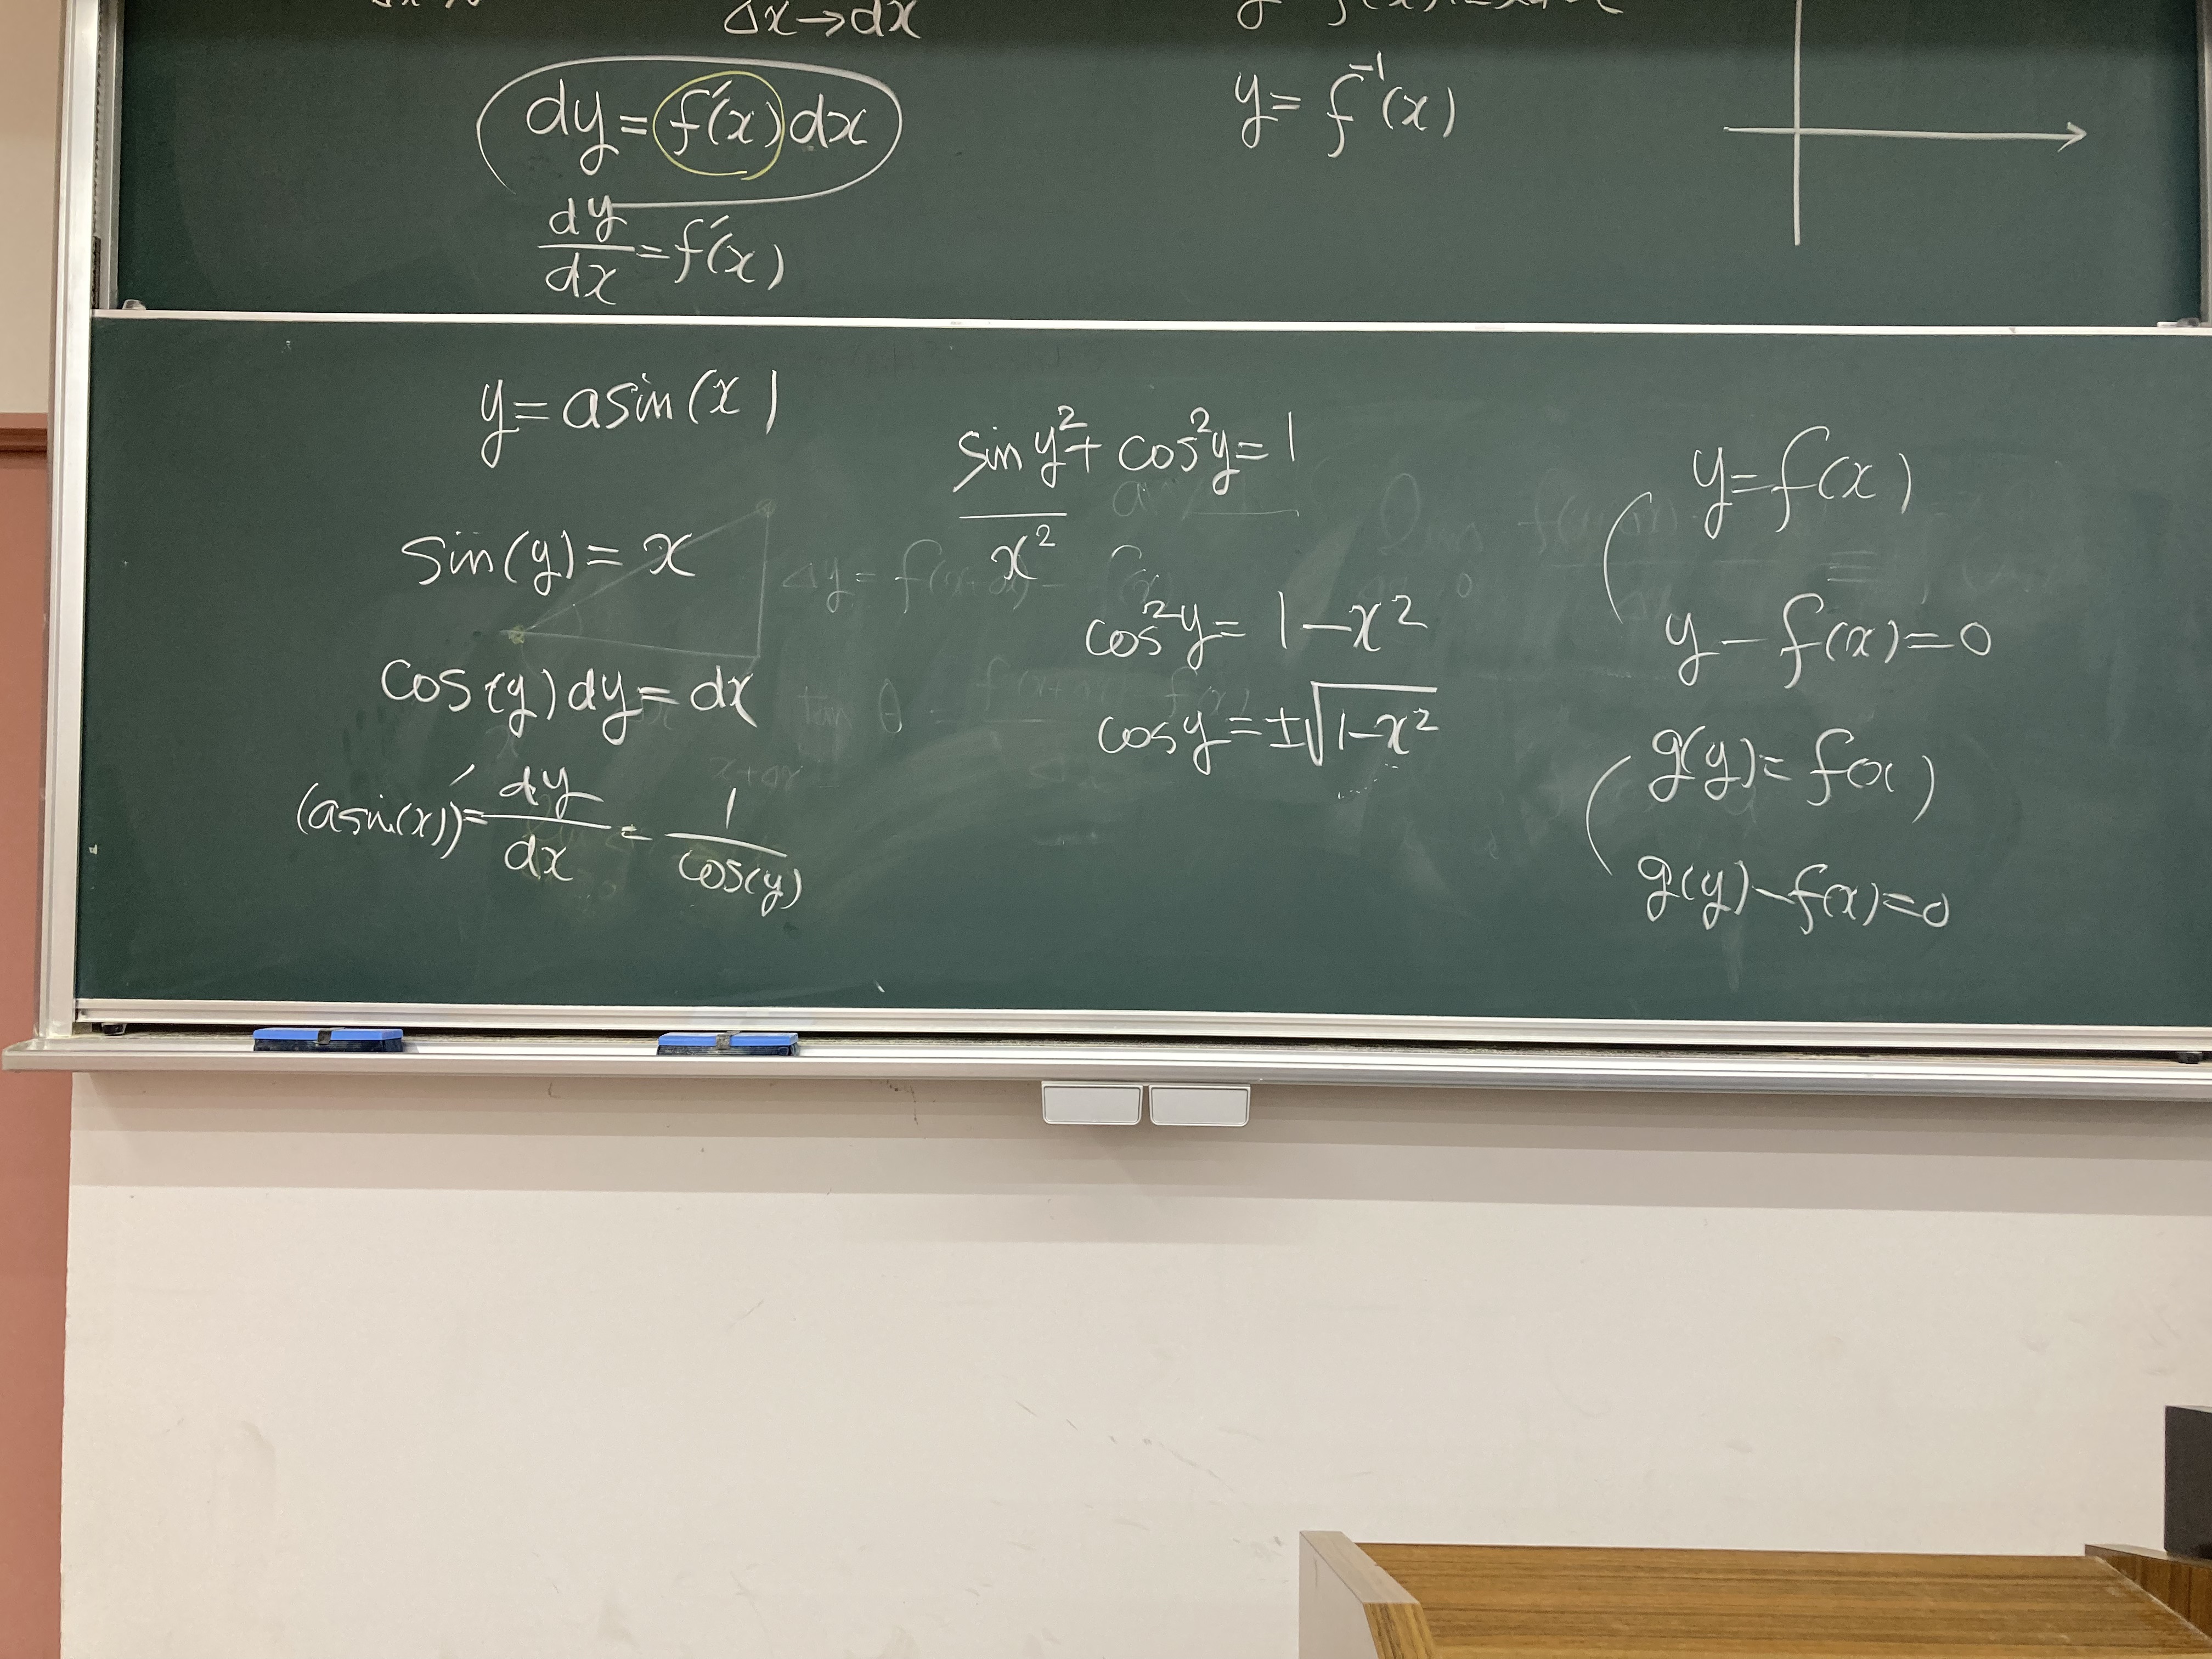 Δx→dx
dy=f'(x)dx
dy/dx=f'(x)
y=f⁻¹(x)
y=asin(x)
sin(y)=x
cos(y)dy=dx
(asin(x))'=dy/dx=1/cos(y)
sin y²+cos²y=1
x²
cos²y=1-x²
cos y=±√1-x²
y=f(x)
y-f(x)=0
g(y)=f(x)
g(y)-f(x)=0